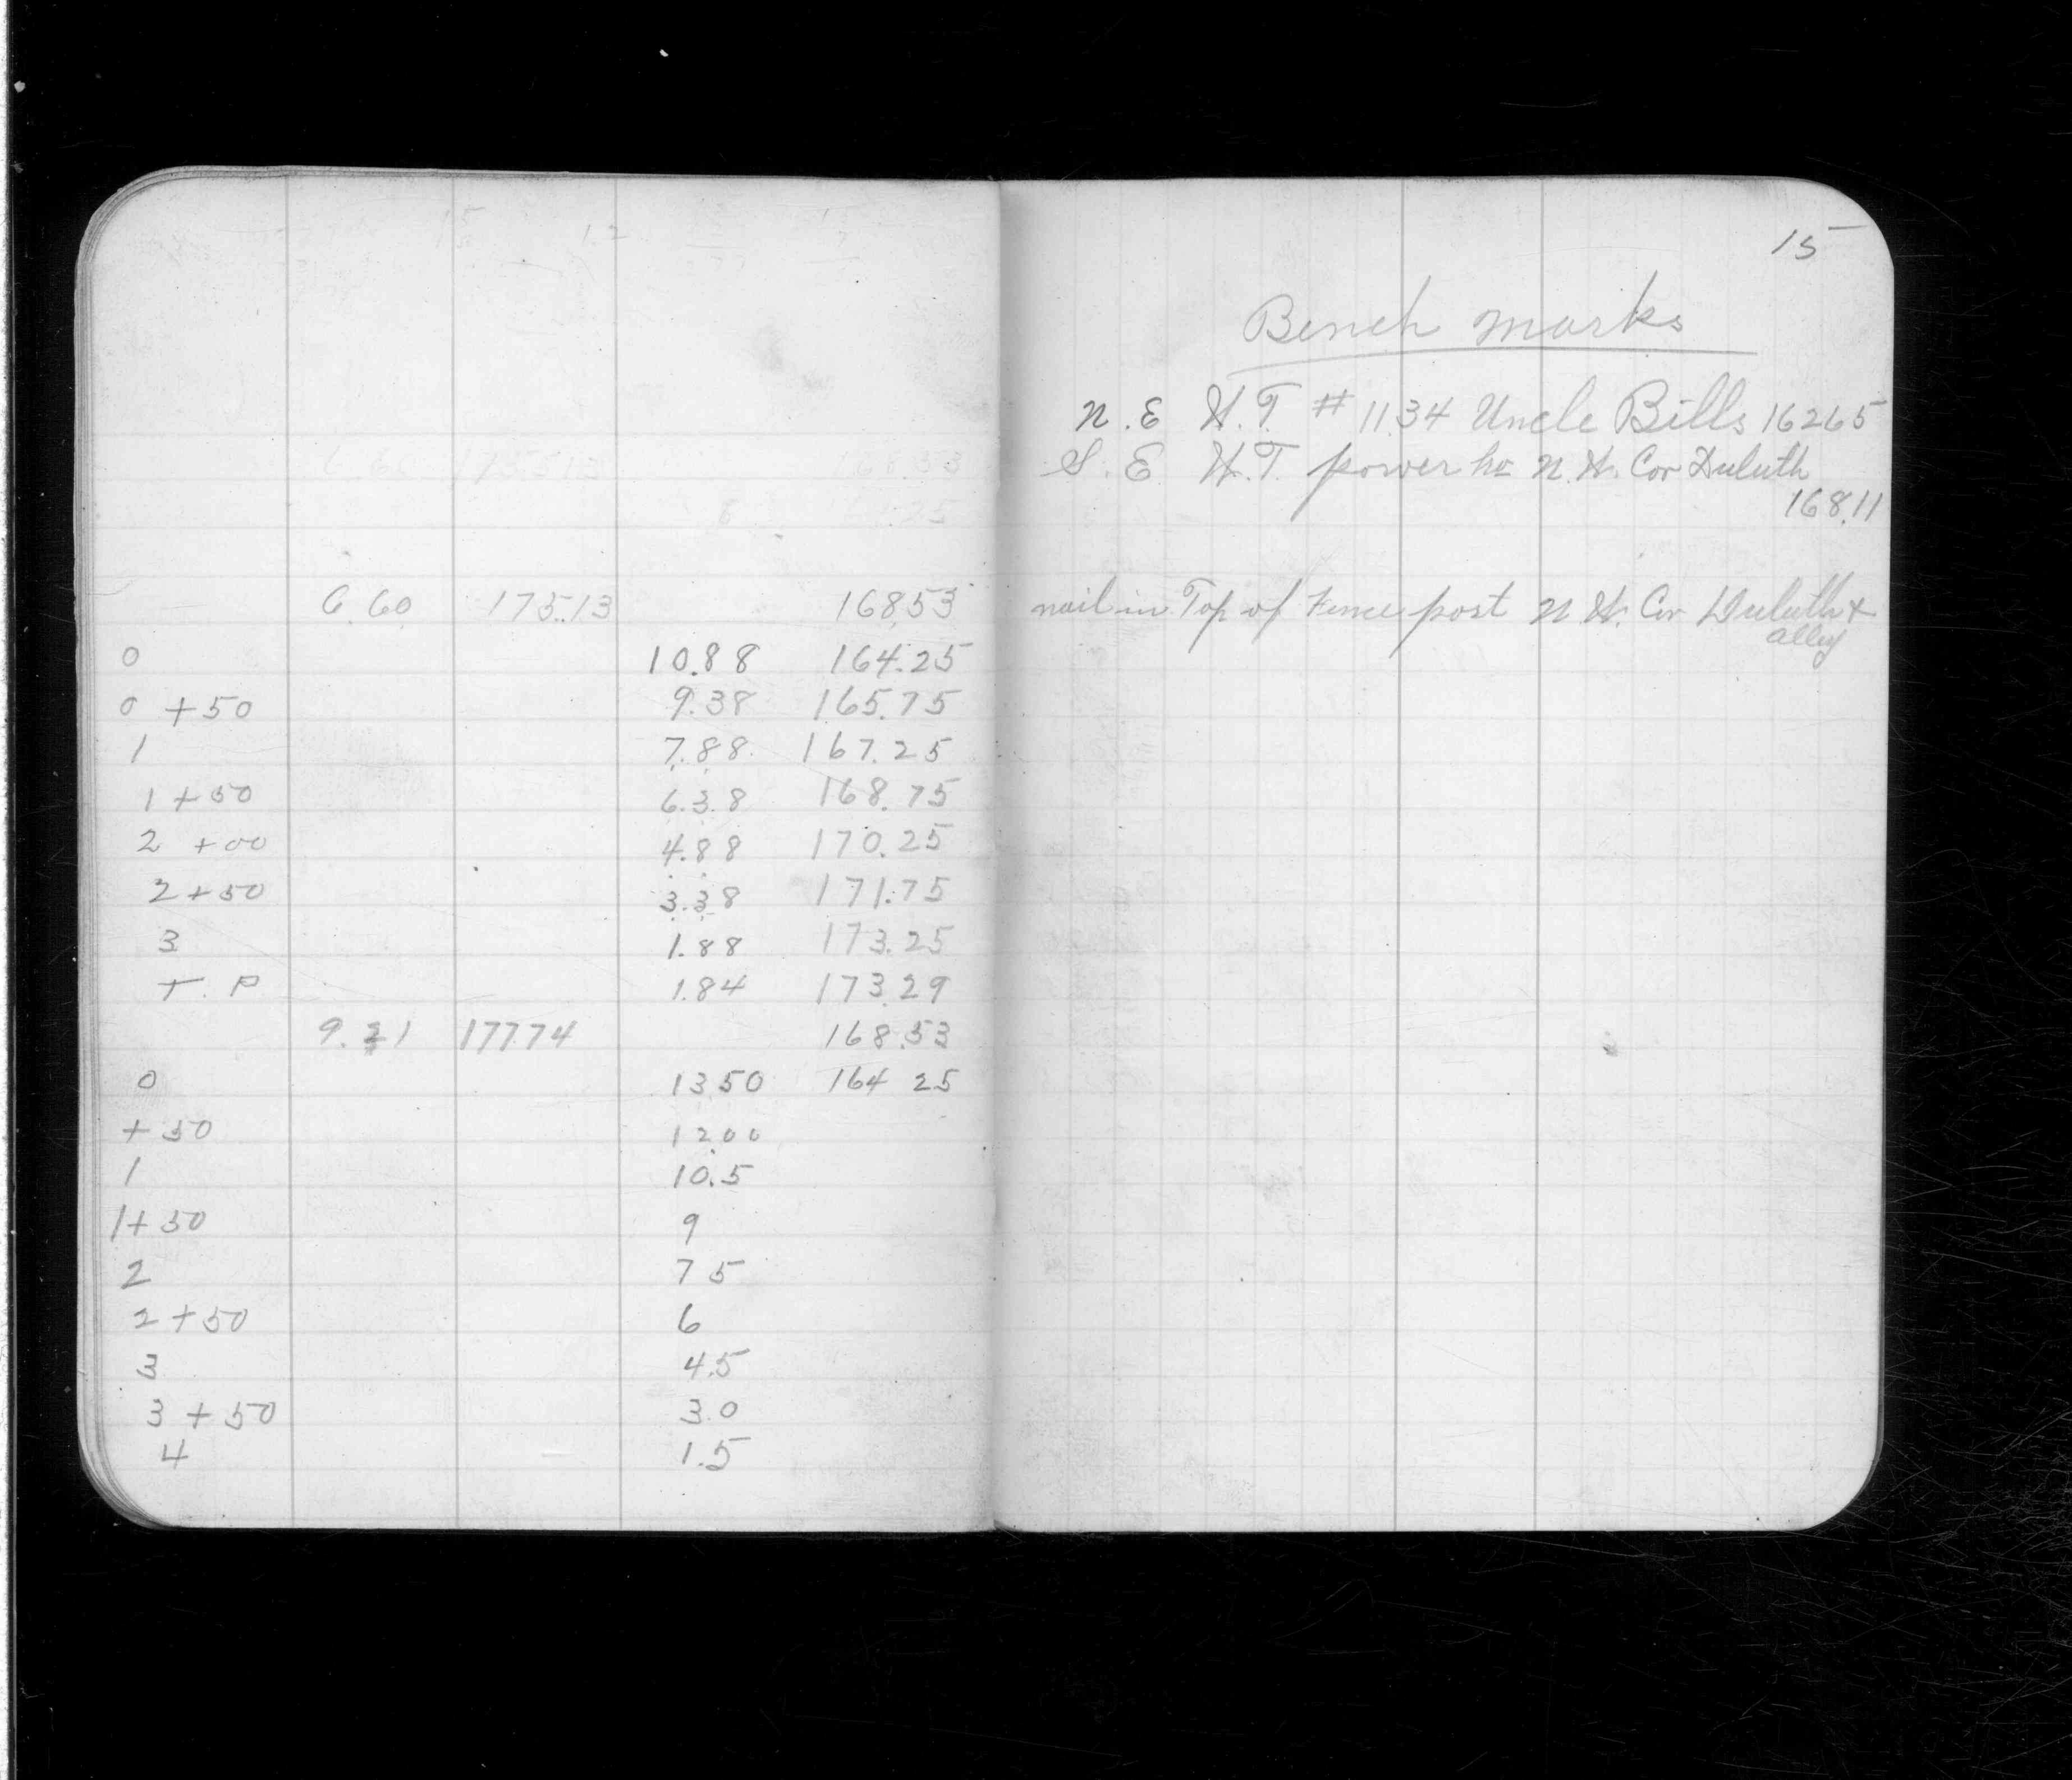 6.60 175.13 168.53
0 10.88 164.25
0 +50 9.38 165.75
1 7.88 167.25
1 +50 6.38 168.75
2 +00 4.88 170.25
2 +50 3.38 171.75
3 1.88 173.25
T. P 1.84 173.29
9.21 177.74 168.53
0 13.50 164 25
+ 50 12.00
1 10.5
1+ 50 9
2 7 5
2 +50 6
3 4.5
3 + 50 3.0
4 1.5
15
Bench marks
N. E W.T. # 1134 Uncle Bills 162 65
S. E W.T. power ho N. W. Cor Duluth
168.11
nail in Top of Fence post N W. Cor Duluth +
alley